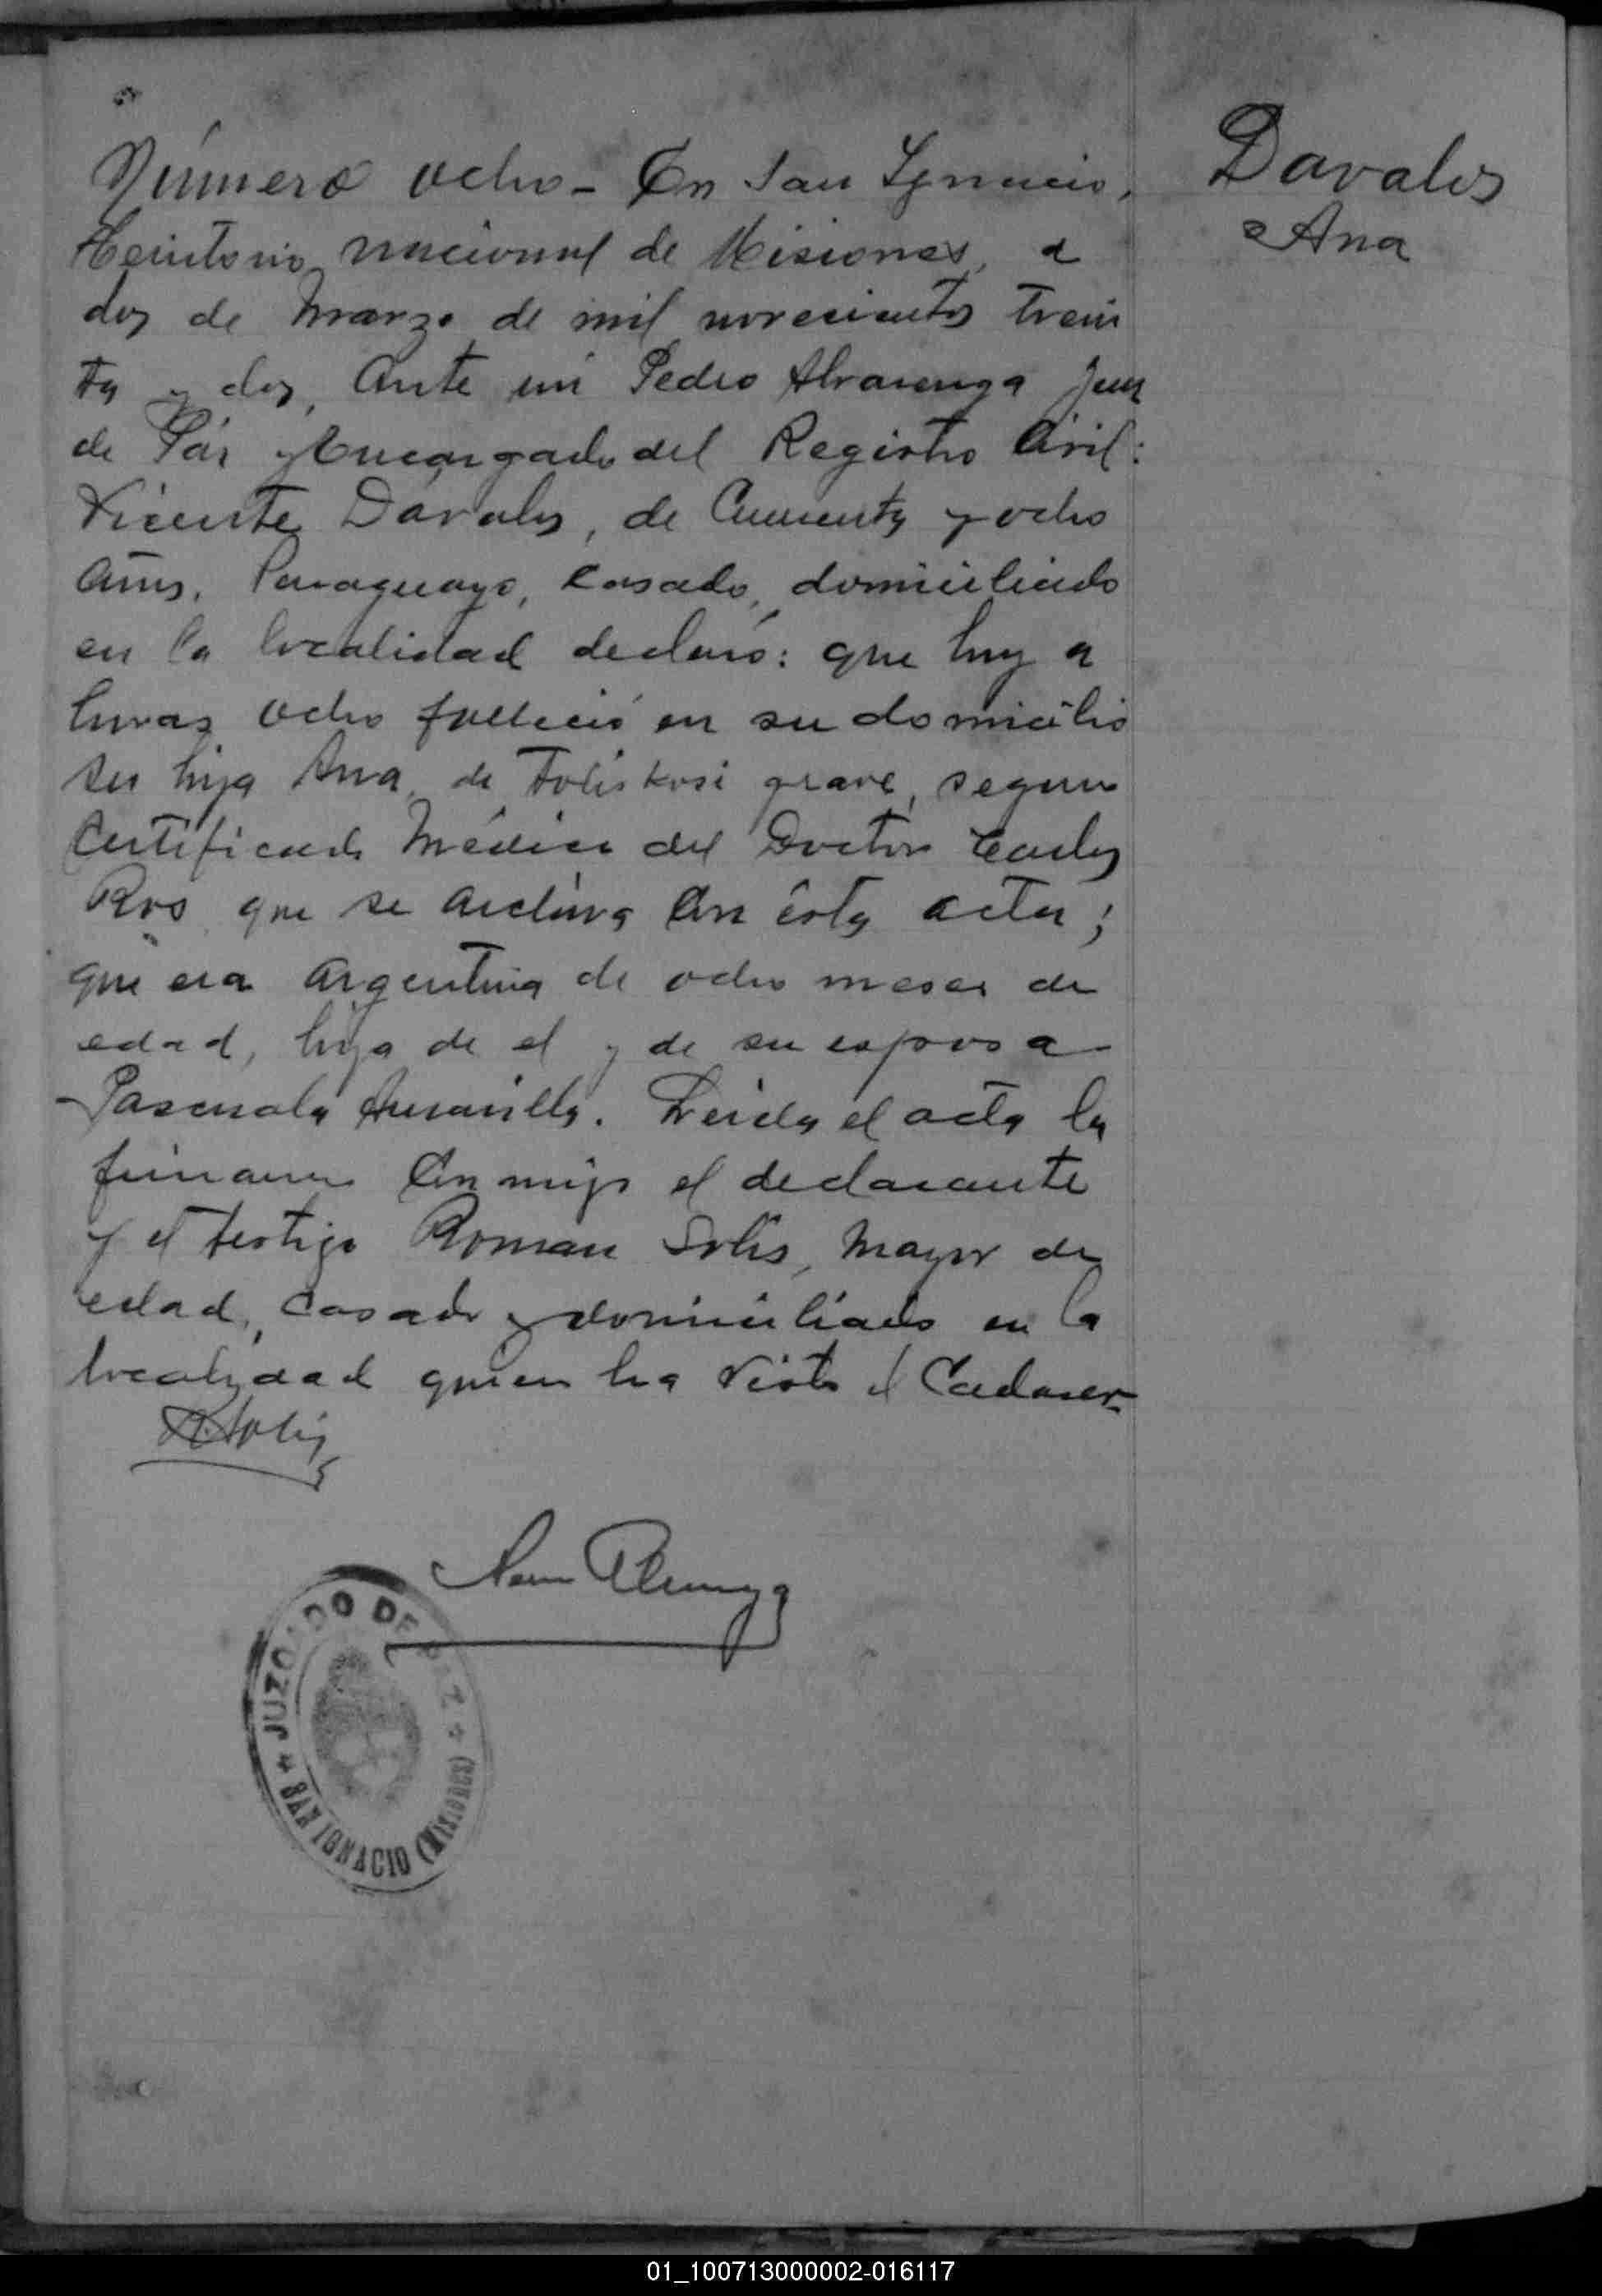 Número ocho - En San Ygnacio,
Territorio nacional de Misiones, a
dos de Marzo de mil novecientos trein
ta y dos, Ante mi Pedro Alvarenga Juez
de Páz y Encargado del Registro Civil:
Vicente Dávalos, de Cuarenta y ocho
años, Paraguayo, Casado, domiciliado
en la localidad declaró: que hoy a
horas ocho falleció en su domicilio
su hija Ana, de grave, segun
Certificado Médico del Doctor Carlos
Ros que se archiva Con ésta acta;
que era Argentina de ocho meses de
edad, hija de el y de su esposa
Pascuala. Leida el acta la
firmaron Conmigo el declarante
y el testigo Roman Solis, Mayor de
edad, Casado y domiciliado en la
localidad quien ha Visto el Cadaver-
R. Solis
JUZGADO DE PAZ
SAN IGNACIO (MISIONES)
Davalos
Ana
01_100713000002-016117